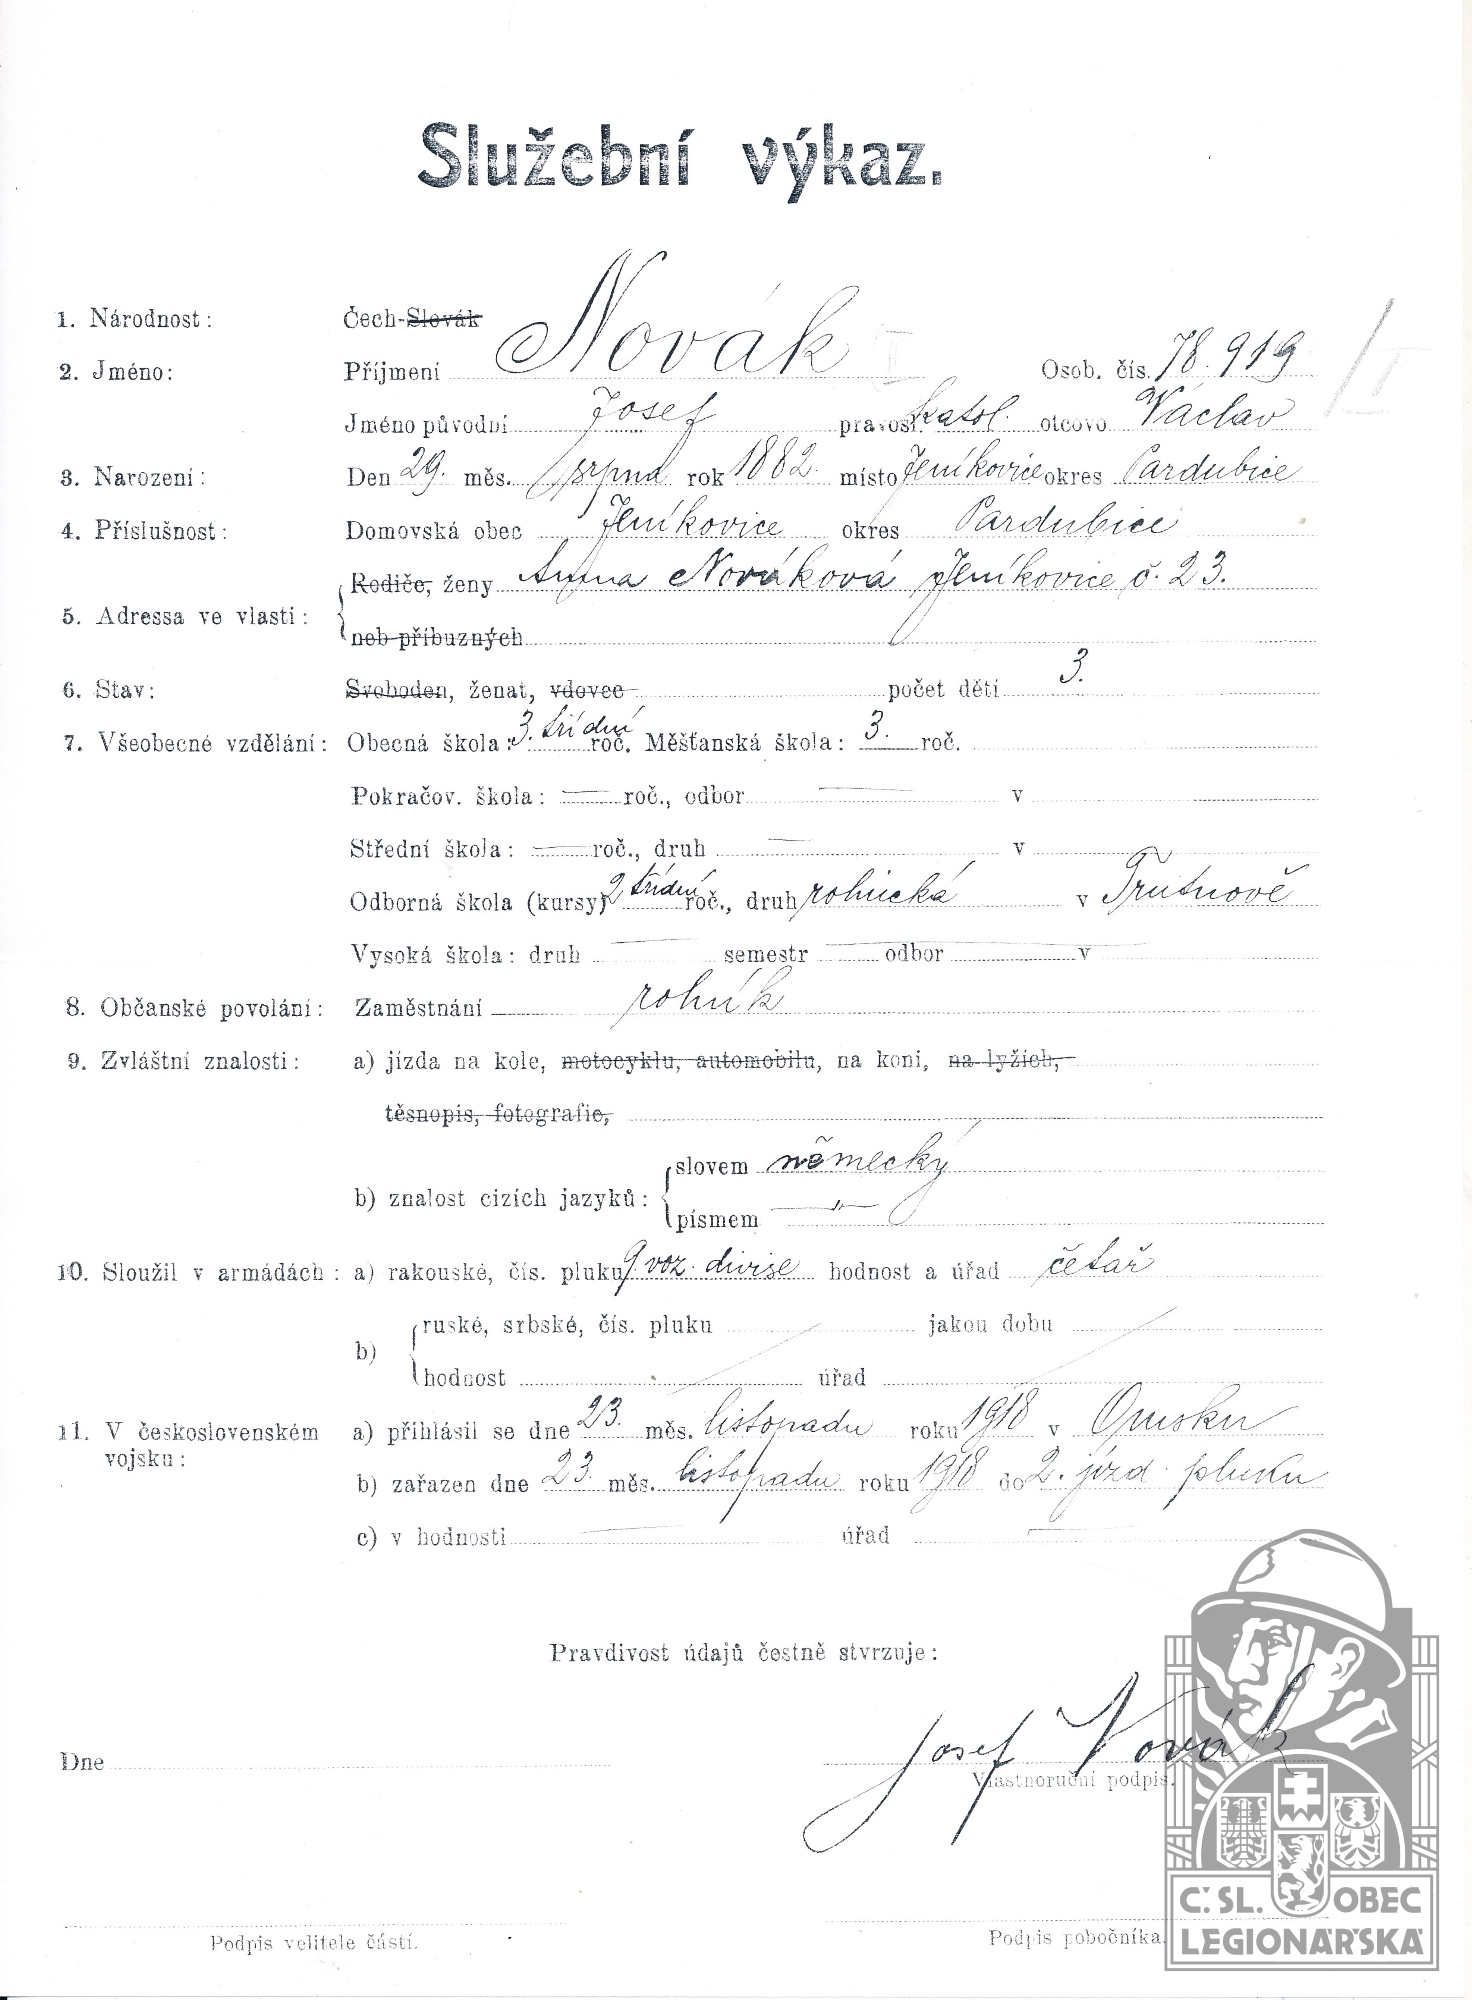 Služební výkaz.
1. Národnost: Čech-Slovák
2. Jméno: Příjmení Novák Osob. čís. 78.919
Jméno původní Josef pravosl. katol. otcovo Václav
3. Narození: Den 29. měs. srpna rok 1882. místo Jeníkovice okres Pardubice
4. Příslušnost: Domovská obec Jeníkovice okres Pardubice
5. Adressa ve vlasti: Rodiče, ženy Anna Nováková Jeníkovice č. 23.
neb příbuzných
6. Stav: Svoboden, ženat, vdovec počet dětí 3.
7. Všeobecné vzdělání: Obecná škola: 3. třídní roč. Měšťanská škola: 3. roč.
Pokračov. škola: — roč., odbor — v
Střední škola: — roč., druh — v
Odborná škola (kursy) 2 třídní roč., druh rolnická v Trutnově
Vysoká škola: druh — semestr — odbor v
8. Občanské povolání: Zaměstnání rolník
9. Zvláštní znalosti: a) jízda na kole, motocyklu, automobilu, na koni, na lyžích,
těsnopis, fotografie,
b) znalost cizích jazyků: slovem německý
písmem —"—
10. Sloužil v armádách: a) rakouské, čís. pluku 9 voz. divise hodnost a úřad četař
b) ruské, srbské, čís. pluku jakou dobu
hodnost úřad
11. V československém vojsku: a) přihlásil se dne 23. měs. listopadu roku 1918 v Omsku
b) zařazen dne 23. měs. listopadu roku 1918 do 2. jízd. pluku
c) v hodnosti — úřad —
Pravdivost údajů čestně stvrzuje:
Dne Josef Novák
Vlastnoruční podpis.
Podpis velitele částí. Podpis pobočníka.
Č.SL. OBEC
LEGIONÁŘSKÁ